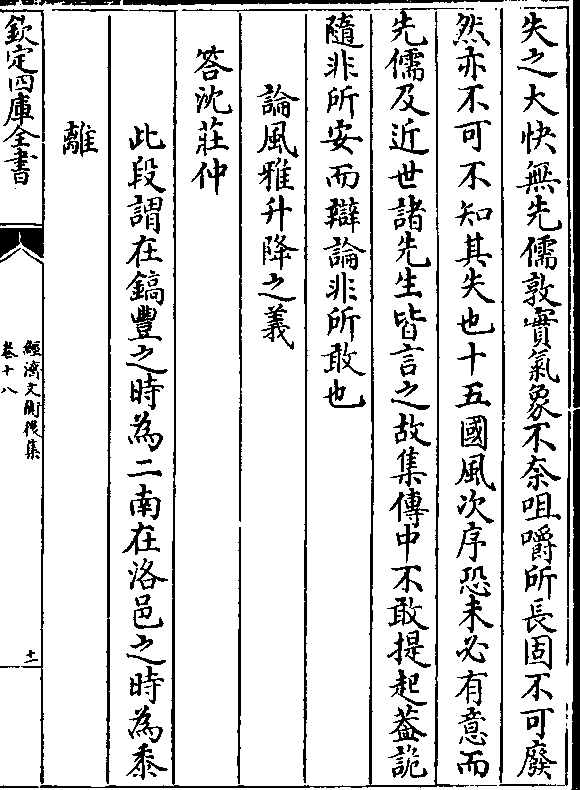 失之大快無先儒敦實氣象不奈咀嚼所長固不可廢
然亦不可不知其失也十五國風次序恐未必有意而
先儒及近世諸先生皆言之故集傳中不敢提起葢詭
隨非所安而辯論非所敢也
論風雅升降之義
答沈莊仲
此段謂在鎬豐之時為二南在洛邑之時為黍
離
欽定四庫全書
經濟文衡後集
卷十八
十二